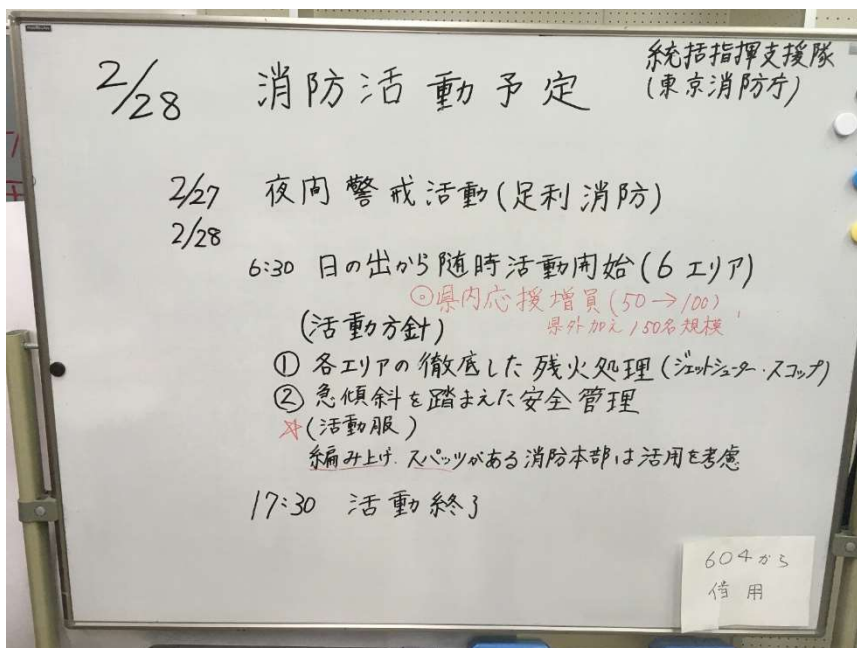 2/28 消防活動予定
統括指揮支援隊
(東京消防庁)
2/27 夜間警戒活動(足利消防)
2/28
6:30 日の出から随時活動開始(6エリア)
◎県内応援増員(50→100)
県外加え150名規模
(活動方針)
① 各エリアの徹底した残火処理(ジェットシューター・スコップ)
② 急傾斜を踏まえた安全管理
☆(活動服)
編み上げ.スパッツがある消防本部は活用を考慮
17:30 活動終了
604から
借用